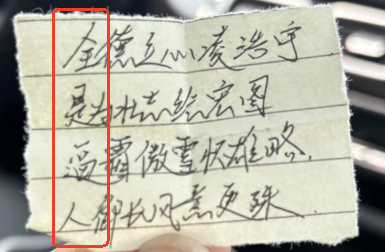 全德立心凌浩宇
是右壮志绘宏图
逼霸傲雪怀雄略.
人御长风意更殊.